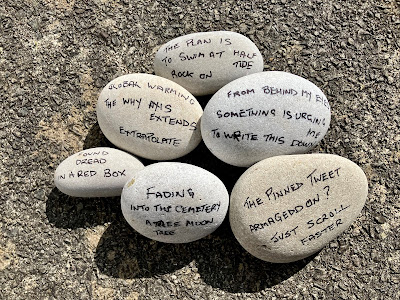 THE PLAN IS
TO SWIM AT HALF
TIDE
ROCK ON
GLOBAL WARMING
THE WHY AXIS
EXTENDS
EXTRAPOLATE
FROM BEHIND MY EYE
SOMETHING IS URGING
ME
TO WRITE THIS DOWN
FOUND
DREAD
IN A RED BOX
FADING
INTO THE CEMETERY
A TREE MOON
TREE
THE PINNED TWEET
ARMAGEDDON?
JUST SCROLL
FASTER